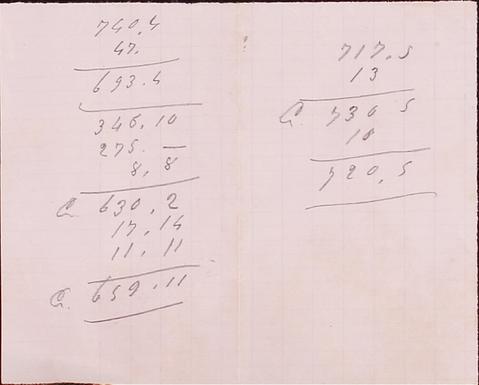 740.4
47.
693.4
346.10
275. —
8.8
G. 630.2
17.14
11.11
G. 659.11
717.5
13
G. 730 5
10
720.5